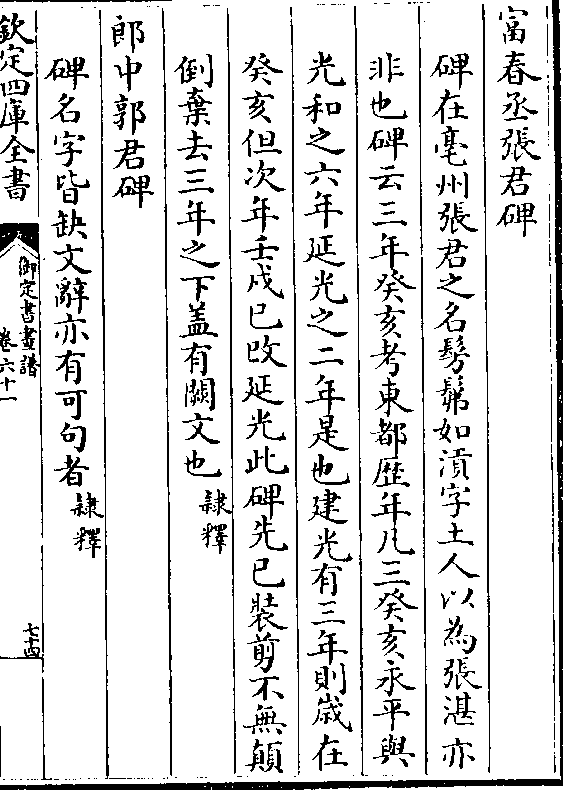 富春丞張君碑
碑在亳州張君之名髣髴如湏字土人以為張湛亦
非也碑云三年癸亥考東都歴年凡三癸亥永平與
光和之六年延光之二年是也建光有三年則嵗在
癸亥但次年壬戌已改延光此碑先已裝剪不無顛
倒棄去三年之下盖有闕文也隷釋
郎中郭君碑
碑名字皆缺文辭亦有可句者隷釋
欽定四庫全書
御定書畫譜
卷六十一
七十四